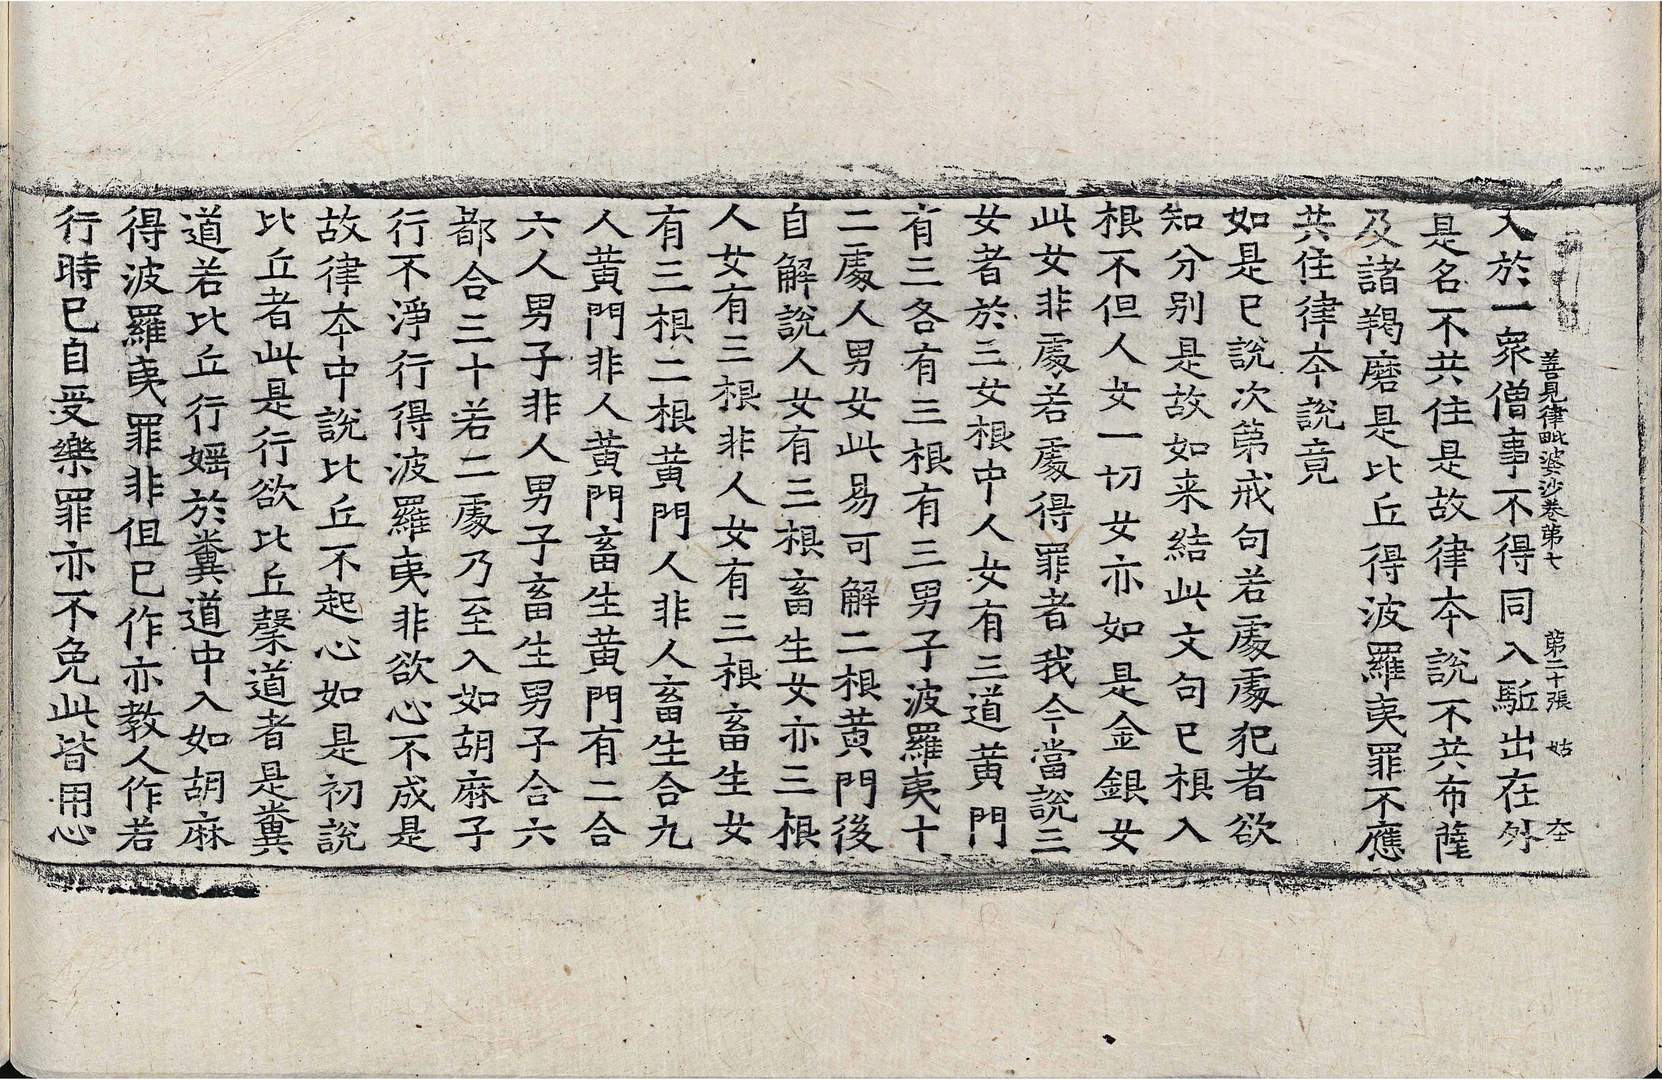 善見律毗婆沙卷第七　第二十張　姑　大
又於一衆僧事不得同入駈出在外
是名不共住是故律夲說不共布薩
及諸羯磨是比丘得波羅夷罪不應
共住律夲說竟
如是已說次第戒句若處處犯者欲
知分別是故如来結此文句已根入
根不但人女一切女亦如是金銀女
此女非處若處得罪者我今當說三
女者於三女根中人女有三道黃門
有三各有三根有三男子波羅夷十
二處人男女此易可解二根黃門後
自解說人女有三根畜生女亦三根
人女有三根非人女有三根畜生女
有三根二根黃門人非人畜生合九
人黃門非人黃門畜生黃門有二合
六人男子非人男子畜生男子合六
都合三十若二處乃至入如胡麻子
行不淨行得波羅夷非欲心不成是
故律夲中說比丘不起心如是初說
比丘者此是行欲比丘穀道者是糞
道若比丘行婬於糞道中入如胡麻
得波羅夷罪非但已作亦教人作若
行時已自受樂罪亦不免此皆用心